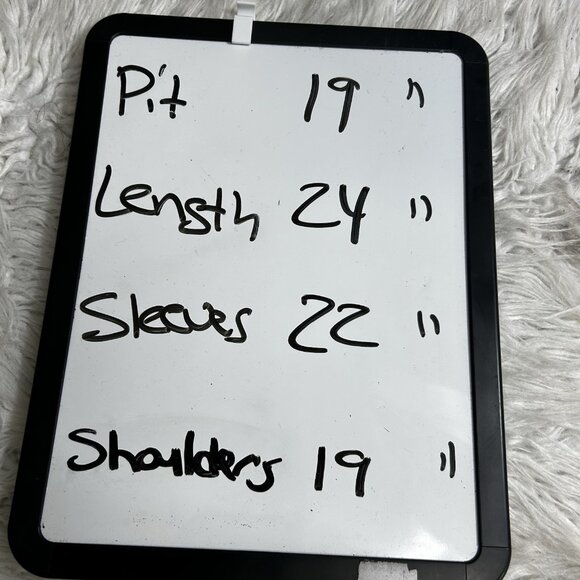 Pit 19 "
Length 24 "
Sleeves 22 "
Shoulders 19 "